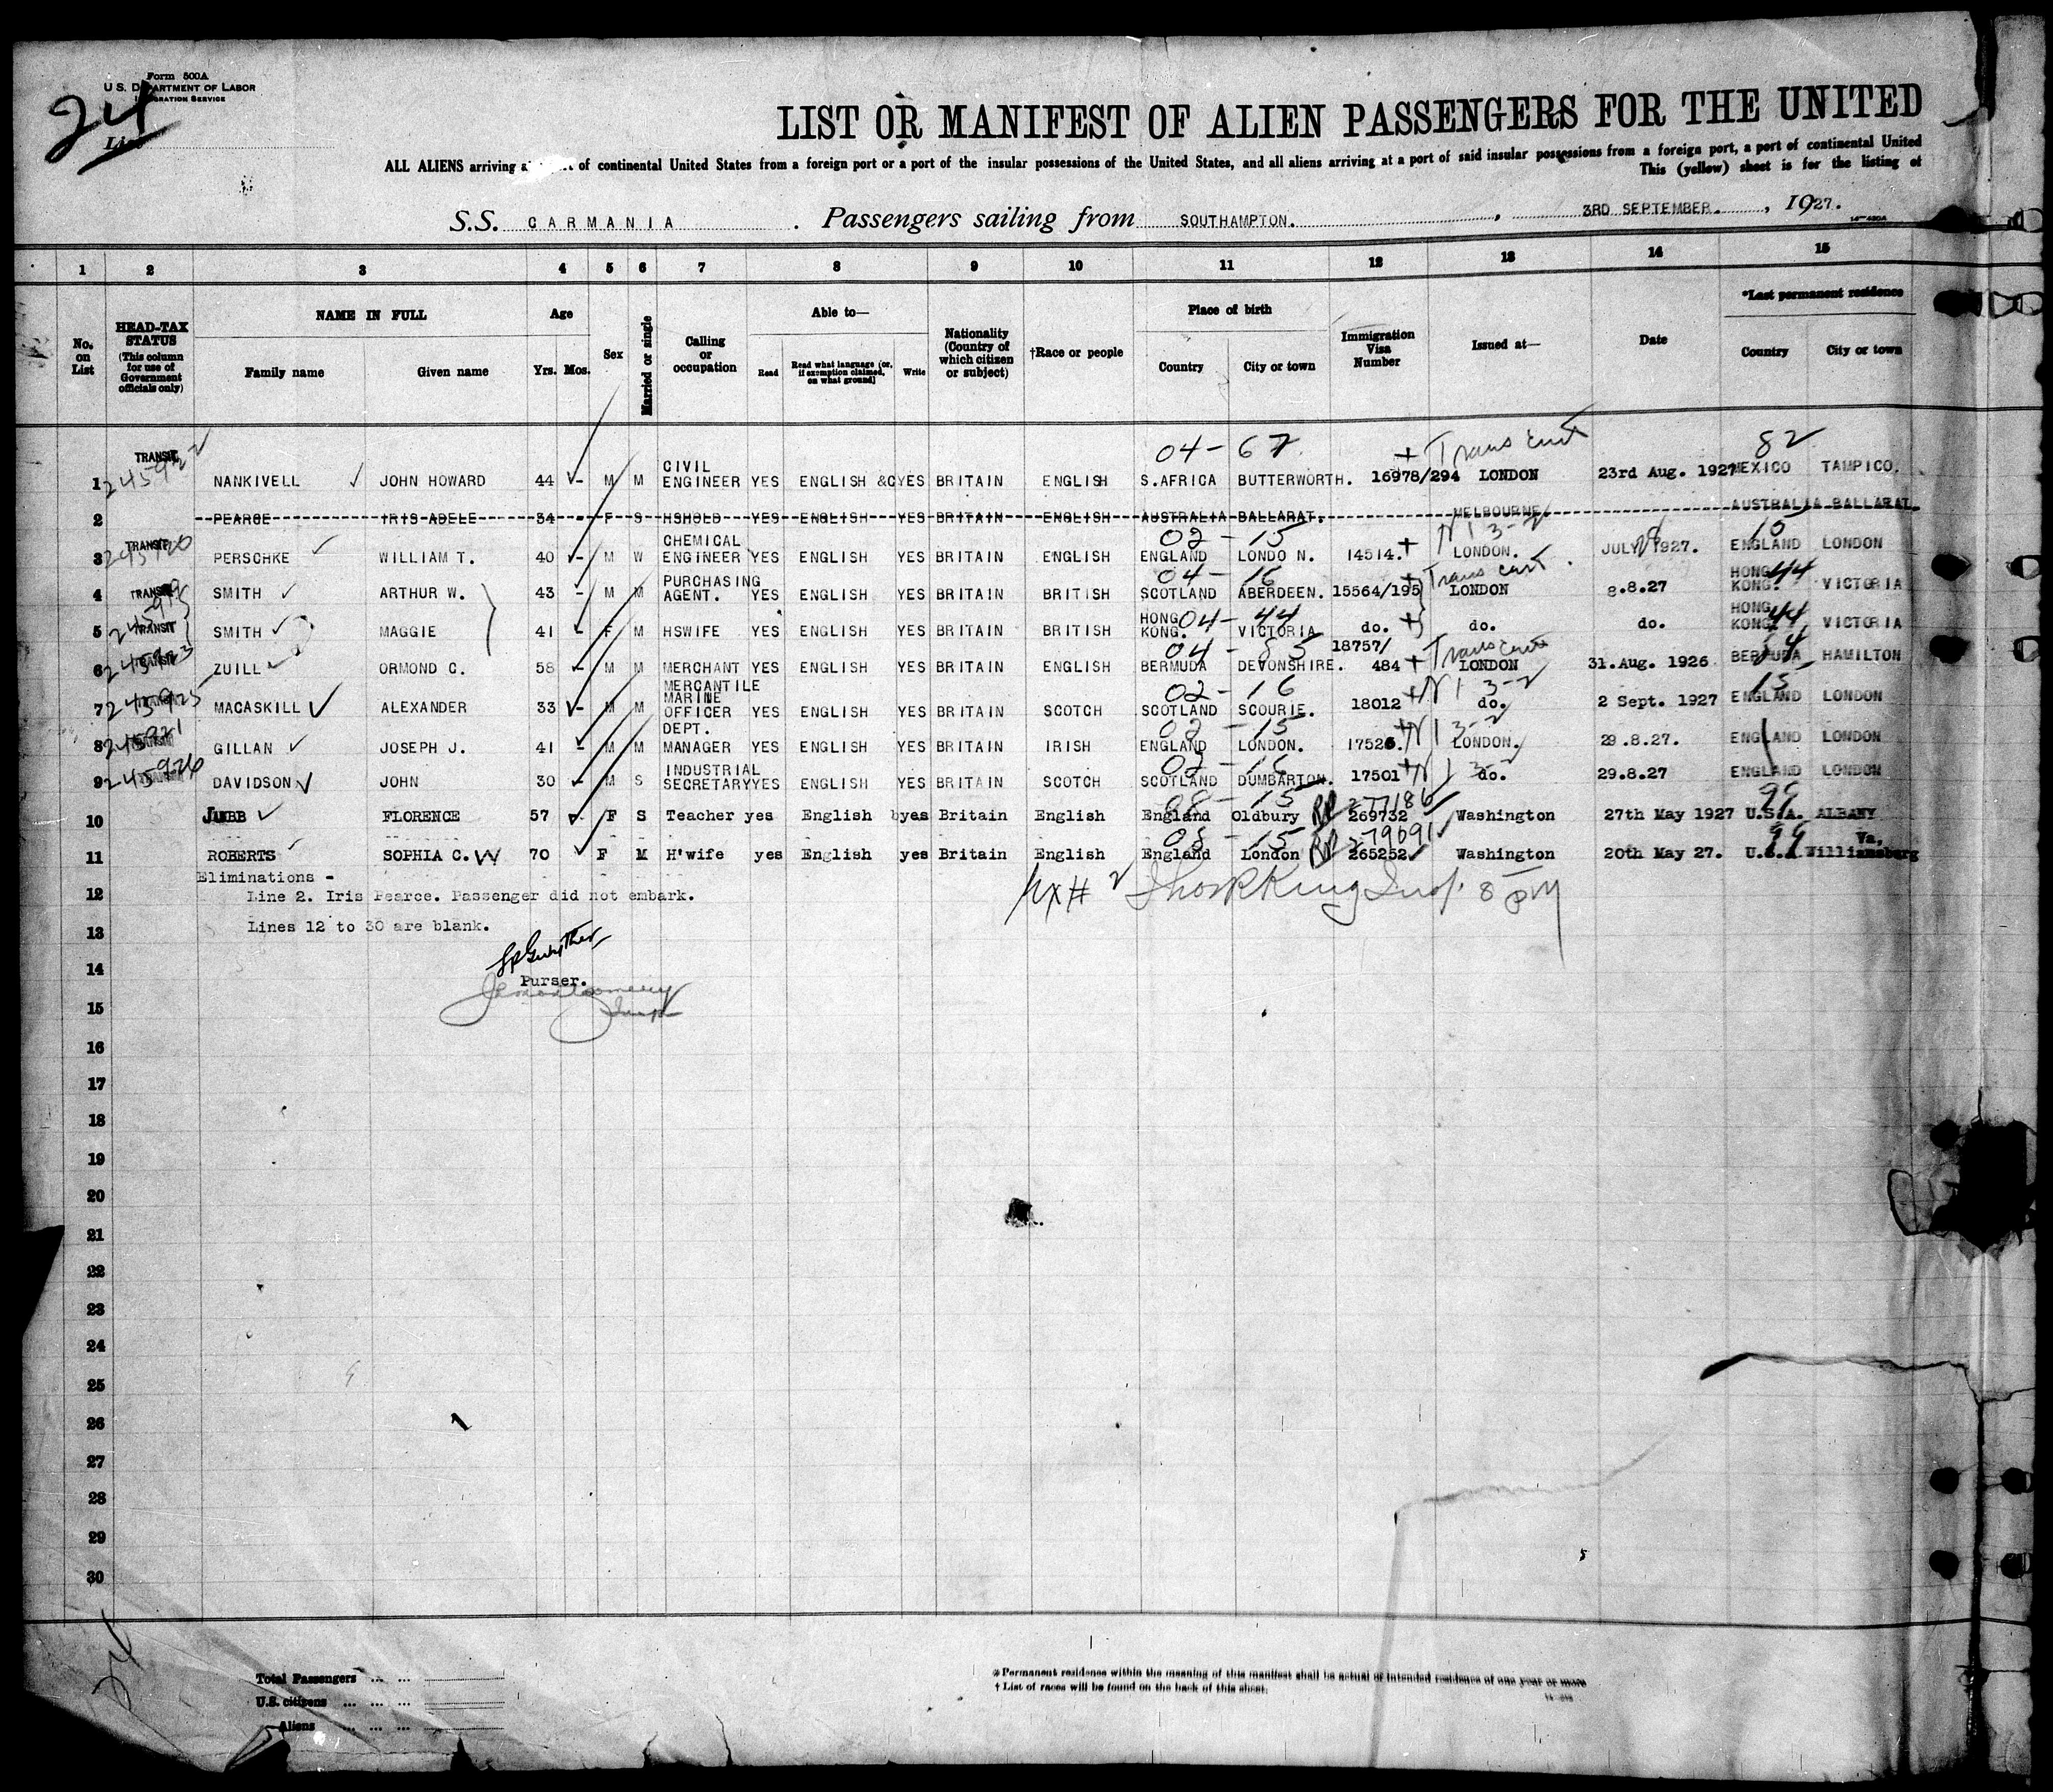 Form 500A
U.S. DEPARTMENT OF LABOR
IMMIGRATION SERVICE
24
List
LIST OR MANIFEST OF ALIEN PASSENGERS FOR THE UNITED
ALL ALIENS arriving a of continental United States from a foreign port or a port of the insular possessions of the United States, and all aliens arriving at a port of said insular possessions from a foreign port, a port of continental United
This (yellow) sheet is for the listing of
S.S. CARMANIA . Passengers sailing from SOUTHAMPTON. , 3RD SEPTEMBER. , 1927.
14—430A
1 2 3 4 5 6 7 8 9 10 11 12 13 14 15
No. on List HEAD-TAX STATUS (This column for use of Government officials only) NAME IN FULL Family name Given name Age Yrs. Mos. Sex Married or single Calling or occupation Able to— Read Read what language [or, if exemption claimed, on what ground] Write Nationality (Country of which citizen or subject) †Race or people Place of birth Country City or town Immigration Visa Number Issued at— Date *Last permanent residence Country City or town
TRANSIT 04-67 + Trans cert 82
1 245922 NANKIVELL JOHN HOWARD 44 - M M CIVIL ENGINEER YES ENGLISH &C YES BRITAIN ENGLISH S.AFRICA BUTTERWORTH. 16978/294 LONDON 23rd Aug. 1927 MEXICO TAMPICO.
2 PEARCE IRIS ADELE 34 - F S HSHOLD YES ENGLISH YES BRITAIN ENGLISH AUSTRALIA BALLARAT. MELBOURNE AUSTRALIA BALLARAT.
TRANSIT 02-15 + N 1 3-2 15
3 PERSCHKE WILLIAM T. 40 - M W CHEMICAL ENGINEER YES ENGLISH YES BRITAIN ENGLISH ENGLAND LONDO N. 14514. LONDON. JULY 1927. ENGLAND LONDON
04-16 + Trans cert 44
4 TRANSIT SMITH ARTHUR W. 43 - M M PURCHASING AGENT. YES ENGLISH YES BRITAIN BRITISH SCOTLAND ABERDEEN. 15564/195 LONDON 8.8.27 HONG KONG. VICTORIA
04-44 + 44
5 TRANSIT SMITH MAGGIE 41 - F M HSWIFE YES ENGLISH YES BRITAIN BRITISH HONG KONG. VICTORIA do. do. do. HONG KONG. VICTORIA
04-85 + Trans cert 84
6 245923 ZUILL ORMOND C. 58 - M M MERCHANT YES ENGLISH YES BRITAIN ENGLISH BERMUDA DEVONSHIRE. 18757/484 LONDON 31.Aug. 1926 BERMUDA HAMILTON
02-16 + N 1 3-2 15
7 245925 MACASKILL ALEXANDER 33 - M M MERCANTILE MARINE OFFICER YES ENGLISH YES BRITAIN SCOTCH SCOTLAND SCOURIE. 18012 do. 2 Sept. 1927 ENGLAND LONDON
02-15 + N 1 3-2
8 245921 GILLAN JOSEPH J. 41 - M M DEPT. MANAGER YES ENGLISH YES BRITAIN IRISH ENGLAND LONDON. 17526. LONDON. 29.8.27. ENGLAND LONDON
02-16 + N 1 3-2
9 245926 DAVIDSON JOHN 30 - M S INDUSTRIAL SECRETARY YES ENGLISH YES BRITAIN SCOTCH SCOTLAND DUMBARTON. 17501 do. 29.8.27 ENGLAND LONDON
08-15 RP 277186 99
10 JUBB FLORENCE 57 F S Teacher yes English yes Britain English England Oldbury 269732 Washington 27th May 1927 U.S.A. ALBANY
08-15 RP 279091 99
11 ROBERTS SOPHIA C. W 70 F M H'wife yes English yes Britain English England London 265252 Washington 20th May 27. U.S.A. Williamsburg Va,
Eliminations -
12 Line 2. Iris Pearce. Passenger did not embark.
Lines 12 to 30 are blank.
13
14
Purser.
15
16
17
18
19
20
21
22
23
24
25
26
27
28
29
30
24
Total Passengers ... ...
U.S. citizens ... ... ...
Aliens ... ... ...
* Permanent residence within the meaning of this manifest shall be actual or intended residence of one year or more
† List of races will be found on the back of this sheet.